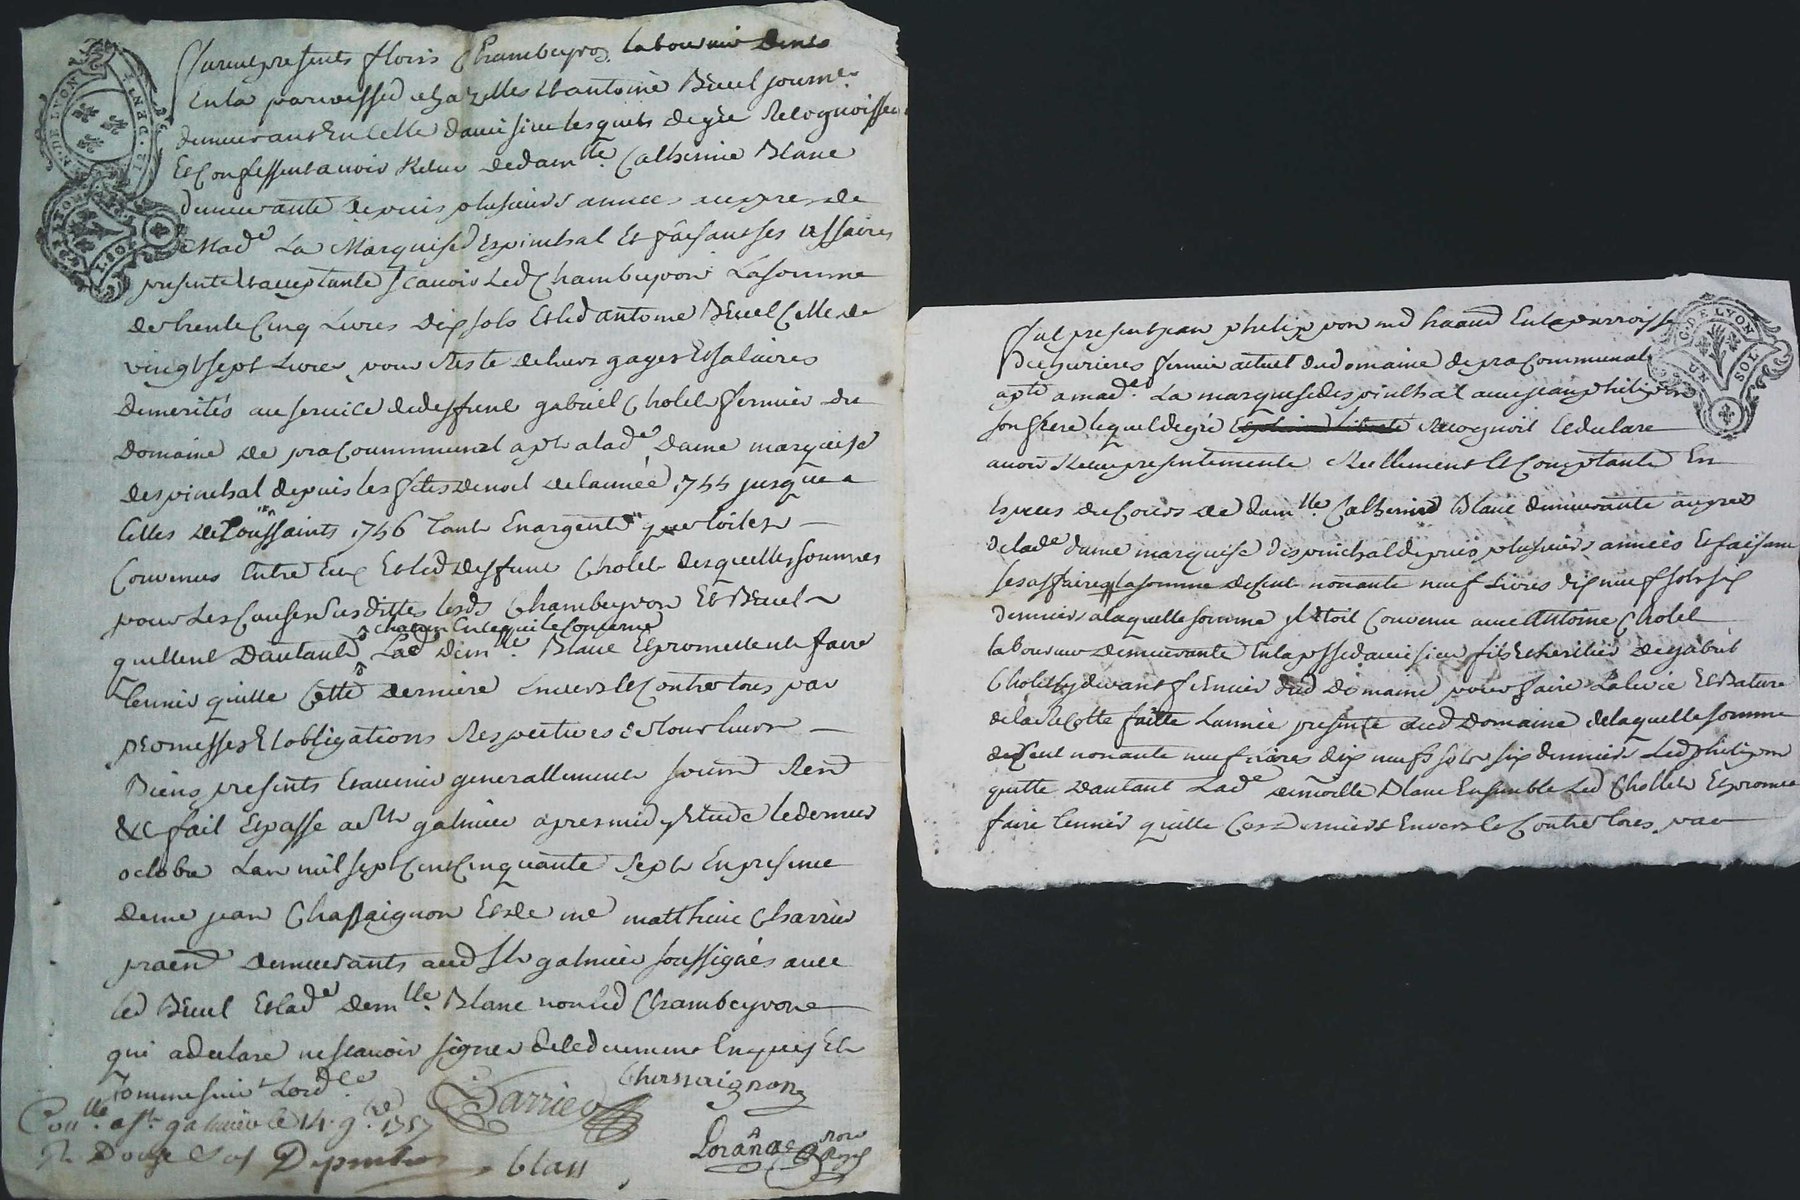 Furent presents floris Chambeyron laboureur
En la parroisse de chazelles et antoine Bruel journr
demeurant En celle d'aveisieu lesquels de gré Recognoissent
Et Confessent avoir Receu de damlle Catherine Blanc
demeurante depuis plusieurs années aupres de
Made La Marquise d'Espinchal Et faisant ses affaires
presente Et acceptante scavoir Led Chambeyron La somme
de trente Cinq Livres dix sols Et led antoine Bruel Celle de
vingt sept Livres pour Reste de leurs gages Et salaires
demerités au service de deffunt gabriel Cholet fermier du
domaine de pra Communal apt a lade dame marquise
despinchal depuis les fetes de noel de l'année 1744 jusque a
Celles de Toussaints 1746 tant En argent que toiles
Convenus Entre Eux Et led deffunt Cholet desquelles sommes
pour Les Causes susdittes lesds Chambeyron Et Bruel
chacun En ce qui le Concerne
quittent D'autant Lade demlle Blanc Et promettent faire
tenir quitte Cette derniere Envers Et Contre tous par
promesses Et obligations Respectives de tous leurs
Biens presents Et avenir generallement soumd Rend
&c fait Et passé a st galmier apres midy Etude le dernier
octobre L'an mil sept Cent Cinquante sept En presence
de me jean Chassaignon Et de me matthieu Charrier
pratn demeurants aud st galmier soussignés avec
led Bruel Et lade demlle Blanc non led Chambeyron
qui a declaré ne scavoir signer de ce duement Enquis Et
sommé suivt Lordce
Chassaignon
Charrier
Conllé a st galmier le 14 9bre 1757
R Douze sols
blan
Loranges nore Royal
C. DE LYON
SOL
Fut present jean philip von md En la parroisse
fermier actuel du domaine de pra Communal
apt a made La marquise despinchal avec jean philipon
son frere lequel de gré Recognoit Et declare
avoir Receu presentement Reellement Et Comptant En
Especes de Cours de damlle Catherine Blanc demeurante aupres
de lade dame marquise despinchal depuis plusieurs années Et faisant
ses affaires la somme de Cent nonante neuf Livres dix neuf sols six
deniers a laquelle somme il Etoit Convenu avec Antoine Cholet
laboureur demeurant En la psse d'aveisieu fils Et heritier de gabriel
Cholet cy devant fermier dud Domaine pour faire La levée Et Bature
de la Recolte faitte L'année presente aud Domaine de laquelle somme
de Cent nonante neuf livres dix neufs sols six deniers Led philipon
quitte D'autant Lade demoiselle Blanc Ensemble Led Chollet Et promet
faire tenir quitte Ces Derniers Envers Et Contre tous par